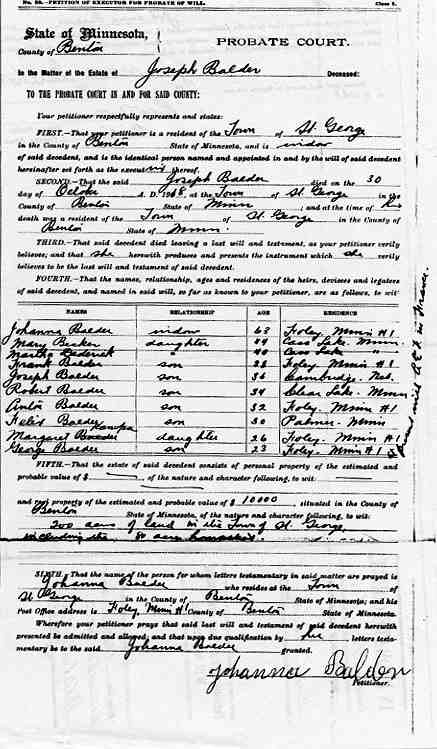 No. 98.—PETITION OF EXECUTOR FOR PROBATE OF WILL. Class 2.
State of Minnesota,
County of Benton
PROBATE COURT.
In the Matter of the Estate of Joseph Balder Deceased:
TO THE PROBATE COURT IN AND FOR SAID COUNTY:
Your petitioner respectfully represents and states:
FIRST.—That your petitioner is a resident of the Town of St. George
in the County of Benton State of Minnesota, and is widow
of said decedent, and is the identical person named and appointed in and by the will of said decedent
hereinafter set forth as the executrix thereof.
SECOND.—That the said Joseph Balder died on the 30
day of October A. D. 1918, at the Town of St. George in the
County of Benton State of Minn ; and at the time of his
death was a resident of the Town of St. George in the County of
Benton State of Minn.
THIRD.—That said decedent died leaving a last will and testament, as your petitioner verily
believes; and that she herewith produces and presents the instrument which she verily
believes to be the last will and testament of said decedent.
FOURTH.—That the names, relationship, ages and residences of the heirs, devisees and legatees
of said decedent, and named in said will, so far as known to your petitioner, are as follows, to wit:
NAMES RELATIONSHIP AGE RESIDENCE
Johanna Balder widow 63 Foley Minn #1
Mary Becker daughter 44 Cass Lake Minn.
Martha " 40 Cass Lake "
Frank Balder son 38 Foley. Minn #1
Joseph Balder son 36 Cambridge, Neb.
Robert Balder son 34 Clear Lake. Minn
Anton Balder son 32 Foley. Minn #1
Felix Balder son 30 Palmer. Minn
Margaret Kampa daughter 26 Foley. Minn #1
George Balder son 23 Foley. Minn #1
FIFTH.—That the estate of said decedent consists of personal property of the estimated and
probable value of $ , of the nature and character following, to wit:
and real property of the estimated and probable value of $ 10000 , situated in the County of
Benton State of Minnesota, of the nature and character following, to wit:
200 acres of land in the Town of St. George,
including the 80 acre homestead.
SIXTH.—That the name of the person for whom letters testamentary in said matter are prayed is
Johanna Balder who resides at the Town of
St George in the County of Benton State of Minnesota; and his
Post Office address is Foley Minn #1 County of Benton State of Minnesota.
Wherefore your petitioner prays that said last will and testament of said decedent herewith
presented be admitted and allowed; and that upon due qualification by her letters testa-
mentary be to the said Johanna Balder granted.
Johanna Balder
Petitioner.